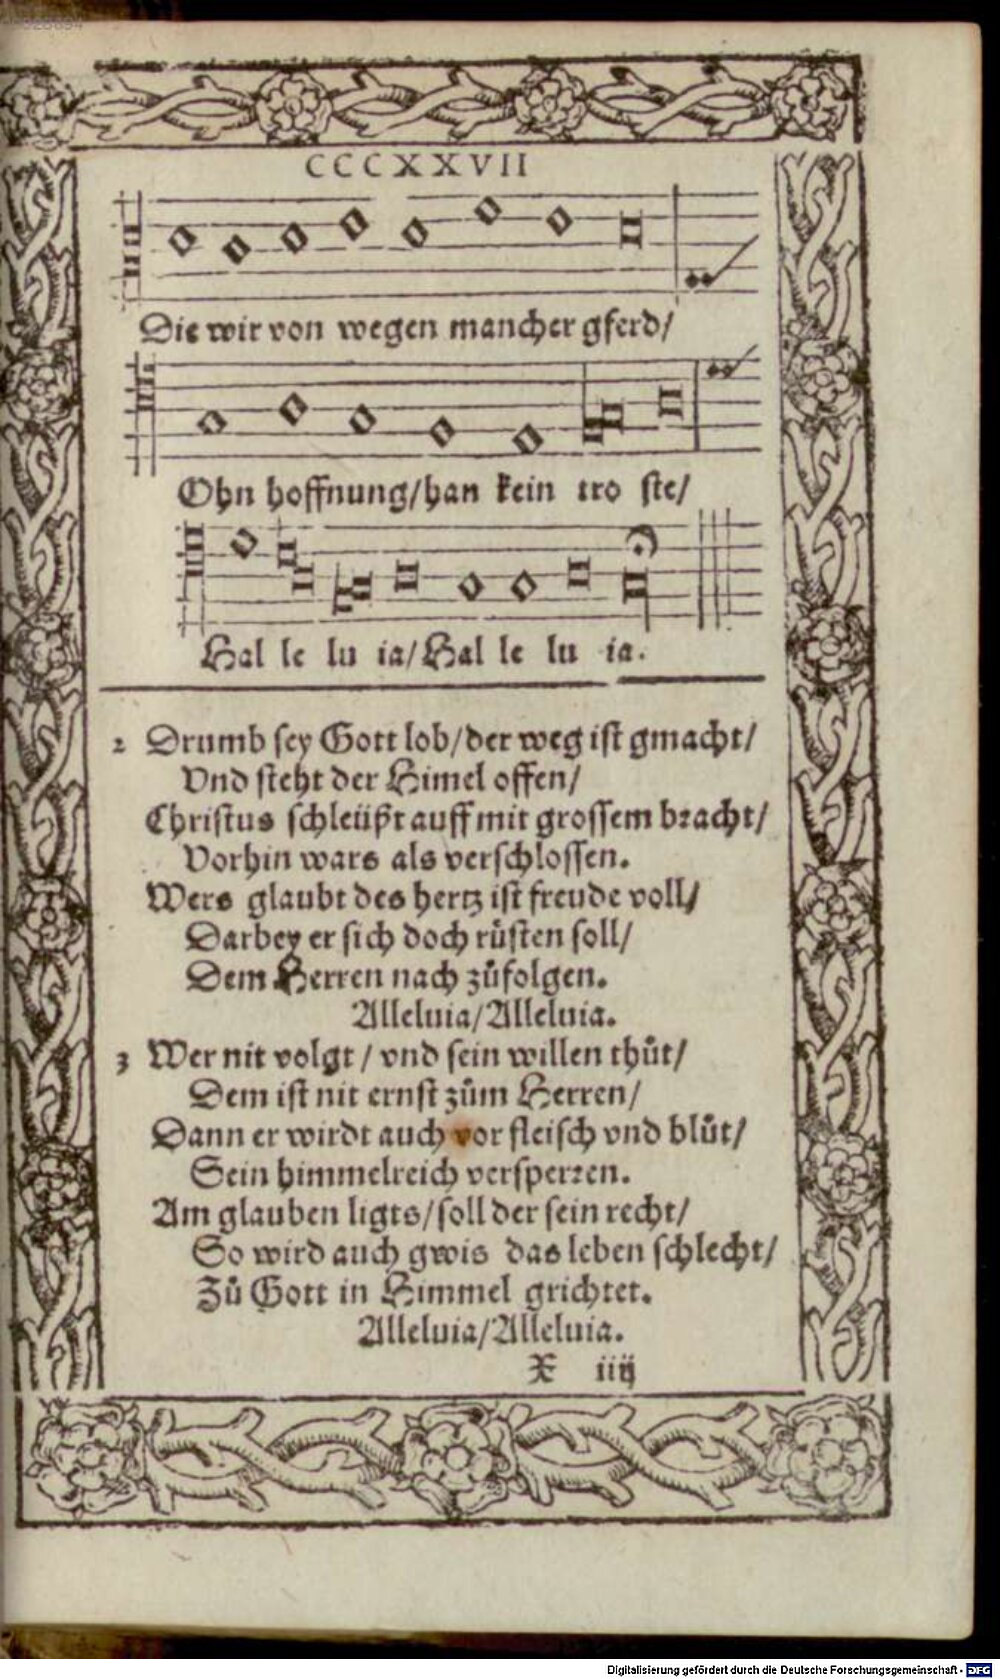 CCCXXVII
Die wir von wegen mancher gferd/
Ohn hoffnung/han kein tro ste/
Hal le lu ia/Hal le lu ia.
2 Drumb sey Gott lob/der weg ist gmacht/
Vnd steht der Himel offen/
Christus schleüßt auff mit grossem bracht/
Vorhin wars als verschlossen.
Wers glaubt des hertz ist freude voll/
Darbey er sich doch rüsten soll/
Dem Herren nach zůfolgen.
Alleluia/Alleluia.
3 Wer nit volgt / vnd sein willen thůt/
Dem ist nit ernst zům Herren/
Dann er wirdt auch vor fleisch vnd blůt/
Sein himmelreich versperren.
Am glauben ligts/soll der sein recht/
So wird auch gwis das leben schlecht/
Zů Gott in Himmel grichtet.
Alleluia/Alleluia.
X iiij
Digitalisierung gefördert durch die Deutsche Forschungsgemeinschaft - DFG